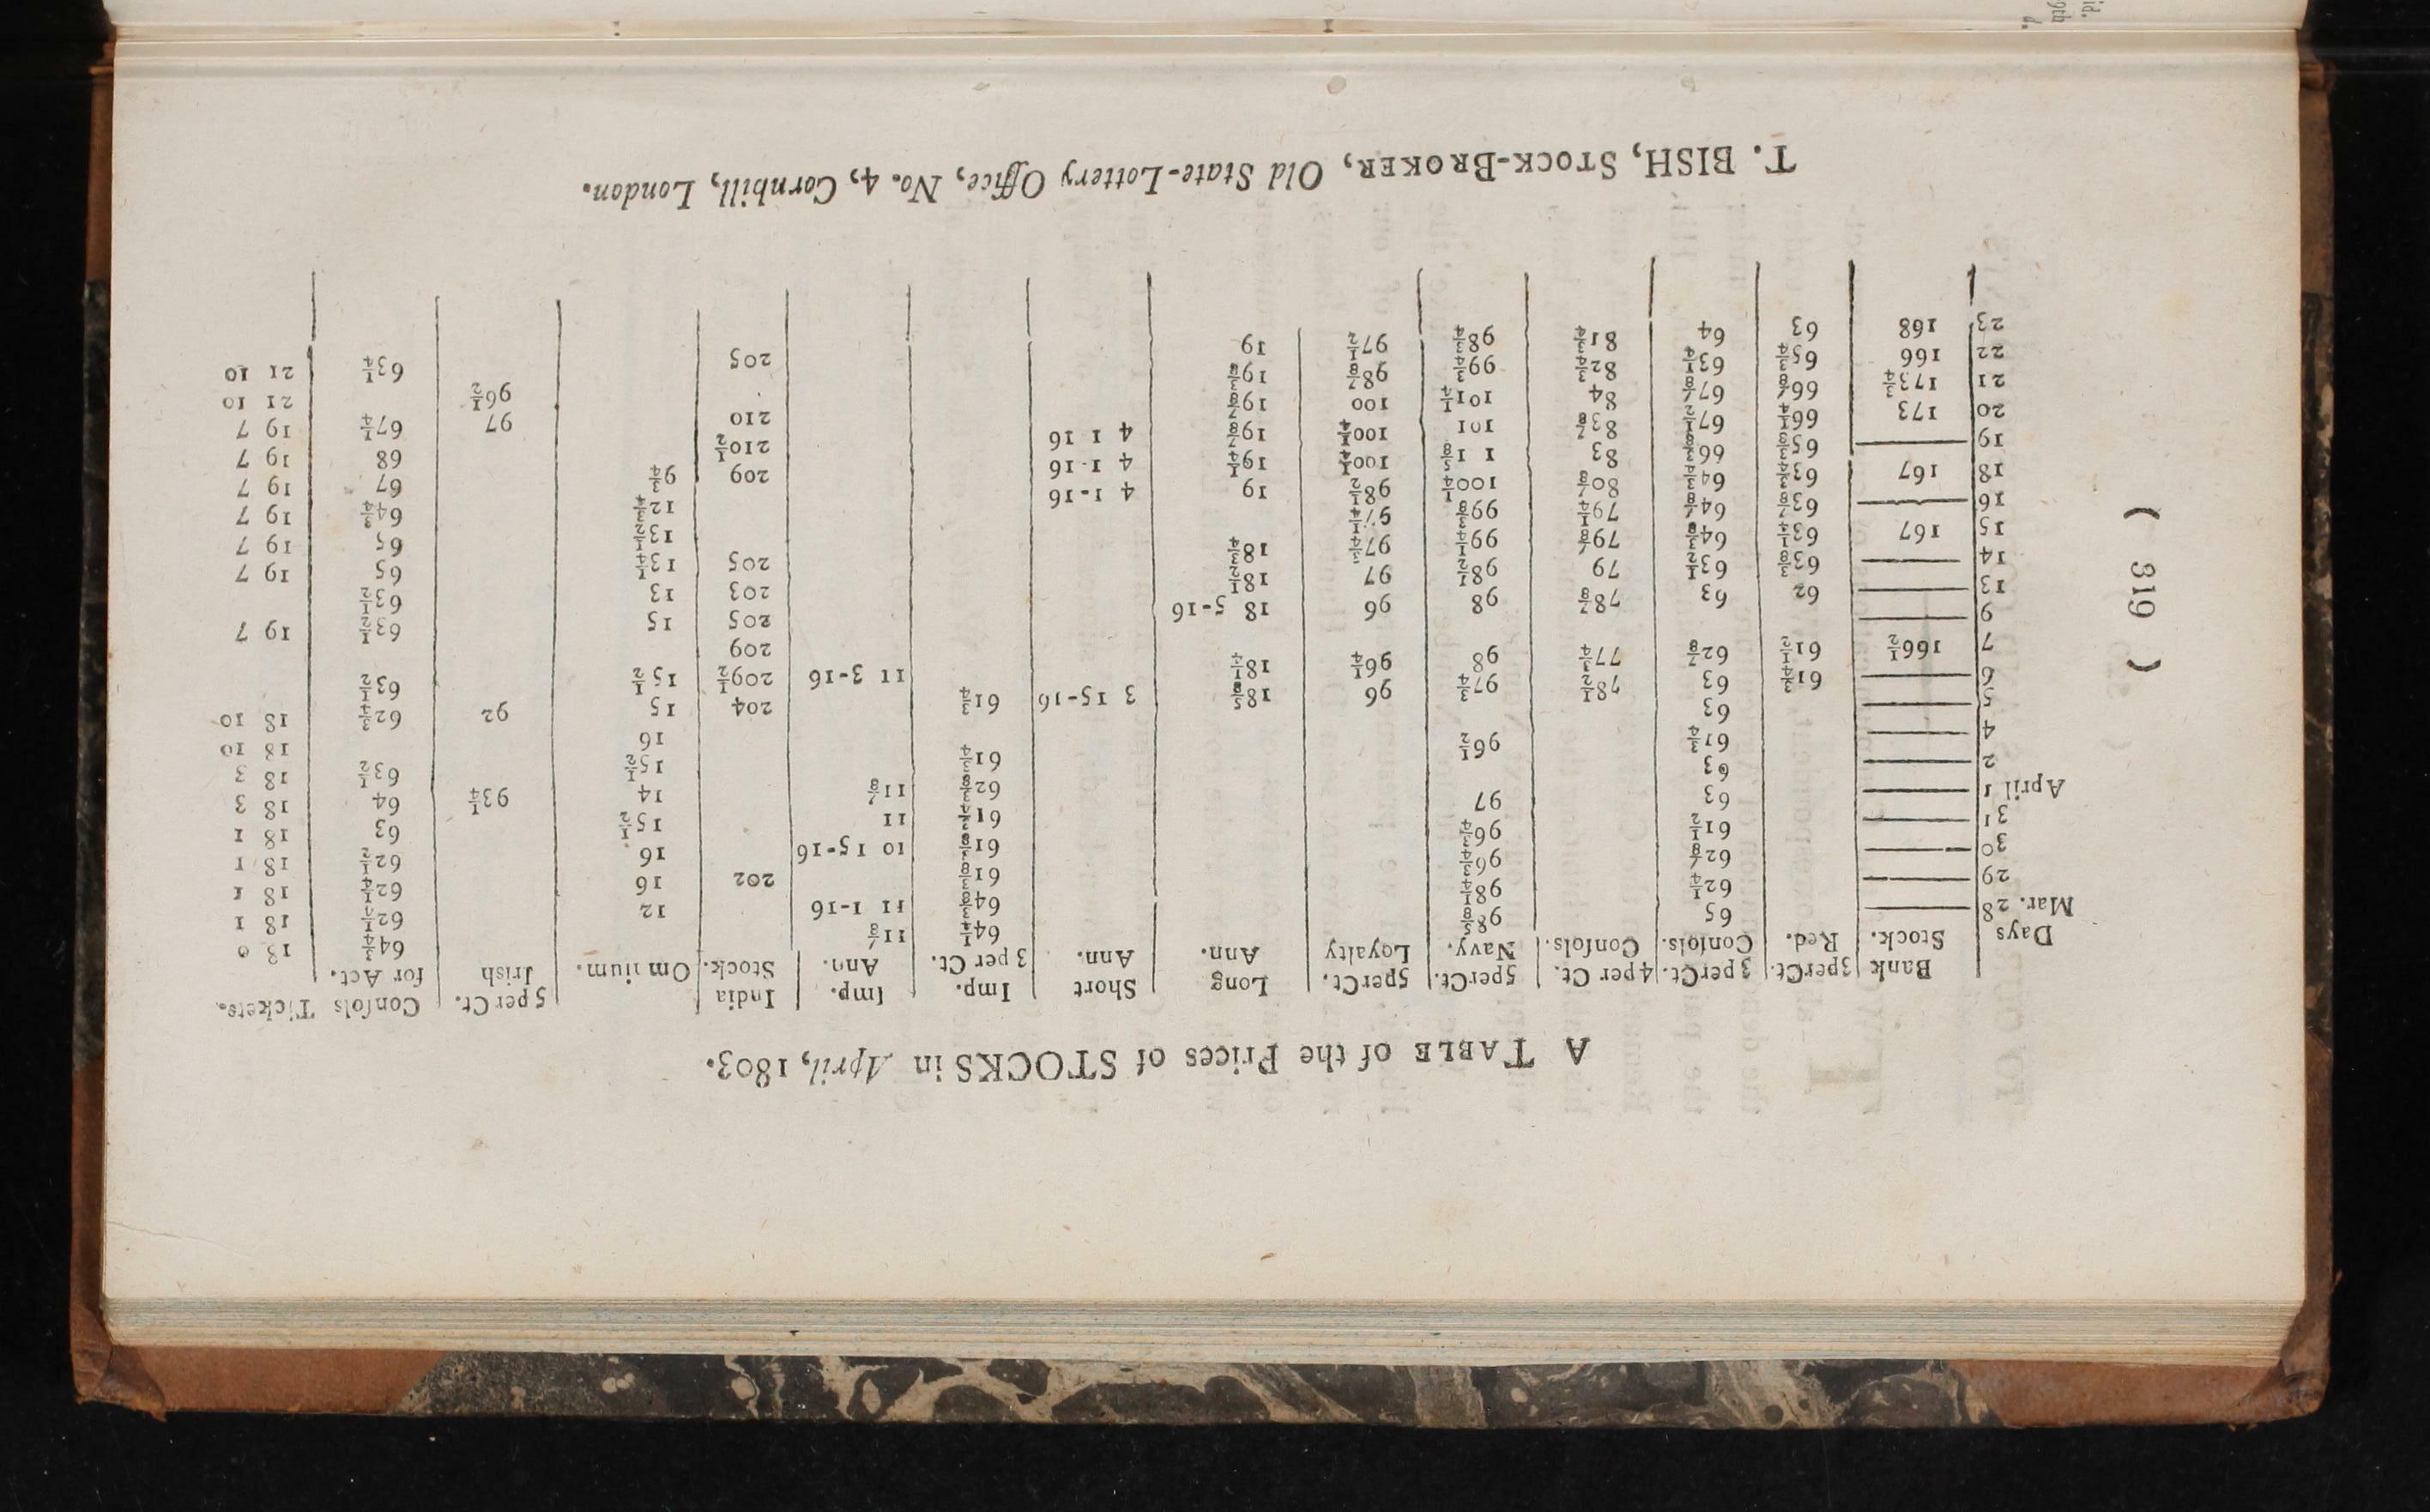 ( 319 )
A TABLE of the Prices of STOCKS in April, 1803.
Days Bank Stock. 3perCt. Red. 3perCt. Conſols. 4 per Ct. Conſols. 5perCt. Navy. 5perCt. Loyalty Long Ann. Short Ann. Imp. 3 per Ct. Imp. Ann. India Stock. Omnium. 5 per Ct. Iriſh Conſols for Act. Tickets.
Mar. 28 — 65 98⅝ 64¼ 11⅞ 64¾ 18 0
29 — 62¼ 98¼ 64⅜ 11 1-16 12 62½ 18 1
30 — 62⅞ 96¾ 61⅜ 202 16 62¼ 18 1
31 — 61½ 96¾ 61⅜ 10 15-16 16 62½ 18 1
April 1 — 63 97 61¾ 11 15½ 63 18 1
2 — 63 62⅜ 11⅞ 14 93¼ 64 18 3
4 — 61¾ 96½ 61¾ 15½ 63½ 18 3
5 — 63 16 18 10
6 — 61¾ 63 78½ 97¾ 96 18⅝ 3 15-16 61¾ 204 15 92 62¾ 18 10
7 166½ 61½ 62⅞ 77¾ 98 96¼ 18¼ 11 3-16 209½ 15½ 63½
9 — 209
13 — 62 63 78⅞ 98 96 18 5-16 205 15 63½ 19 7
14 — 63⅜ 63½ 79 98½ 97 18½ 203 13 63½
15 167 63¼ 64⅜ 79⅞ 99¼ 97¾ 18¾ 205 13¼ 65 19 7
16 — 63⅞ 64⅞ 79¼ 99⅜ 97¼ 13½ 65 19 7
18 167 63¾ 64¾ 80⅞ 100¼ 98½ 19 4 1-16 12¾ 64¾ 19 7
19 — 65⅜ 66⅜ 83 1 1⅝ 100¼ 19¼ 4 1-16 209 9¾ 67 19 7
20 173 66¼ 67½ 83⅞ 101 100¼ 19⅞ 4 1 16 210½ 68 19 7
21 173¾ 66⅞ 67⅞ 84 101¼ 100 19⅞ 210 97 67¼ 19 7
22 166 65¾ 63¼ 82¾ 99¾ 98⅞ 19⅜ 96½ 21 10
23 168 63 64 81¾ 98¾ 97½ 19 205 63¼ 21 10
T. BISH, STOCK-BROKER, Old State-Lottery Office, No. 4, Cornhill, London.